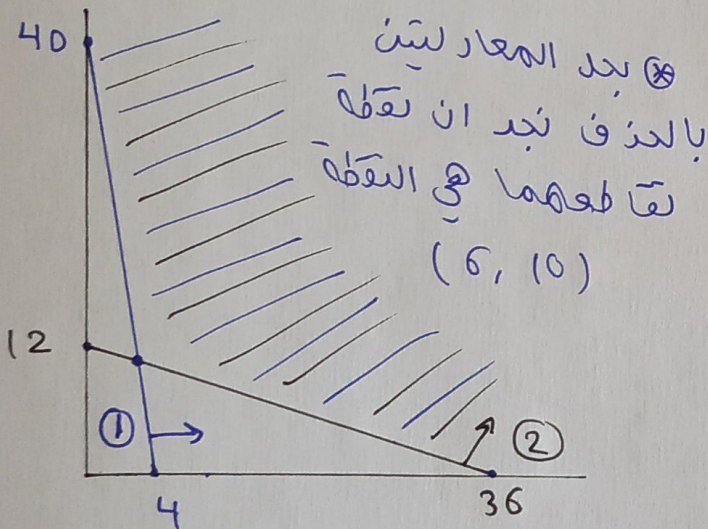 40
⊛ بحد المعادلتين
بالحذف نجد ان نقطة
تقاطعهما هي النقطة
(6, 10)
12
①
②
4
36